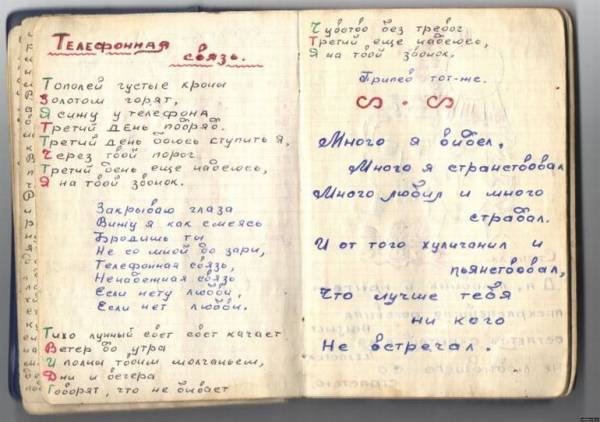 Телефонная
связь.
Тополей густые кроны
Золотом горят,
Я сижу у телефона
Третий день подряд.
Третий день боюсь ступить я,
Через твой порог.
Третий день еще надеюсь,
Я на твой звонок.
Закрываю глаза
Вижу я как смеясь
Бродишь ты
Не со мной до зари,
Телефонная связь,
Ненадежная связь
Если нету любви,
Если нет любви.
Тихо лунный свет свет качает
Ветер до утра
И полны твоим молчаньем,
Дни и вечера
Говорят, что не бывает
Чувство без тревог
Третий еще надеюсь,
Я на твой звонок.
Припев тот-же.
Много я видел,
Много я странствовал
Много любил и много
страдал.
И от того хулиганил и
пьянствовал,
Что лучше тебя
ни кого
Не встречал.